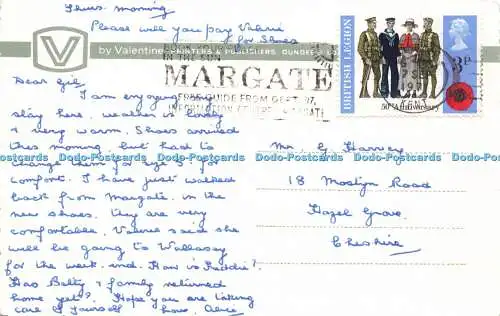 Thurs. morning
Please will you pay Valerie
for Shoes
V
by Valentine PRINTERS & PUBLISHERS DUNDEE
IN THE SUN
MARGATE
FREE GUIDE FROM DEPT. 37,
BRITISH LEGION
50th Anniversary
3P
Dear Gil
I am enjoying
stay here, weather is lovely
& very warm. Shoes arrived
this morning but had to
change them for size 5 for
comfort. I have just walked
back from Margate in the
new shoes. They are very
comfortable. Valerie said she
will be going to Wallasey
for the week-end. How is Freddie?
Has Betty & family returned
home yet? Hope you are taking
care of yourself love, Alice
Mr. G. Harvey
18 Mostyn Road
Hazel Grove
Cheshire
Postcards-Postcards